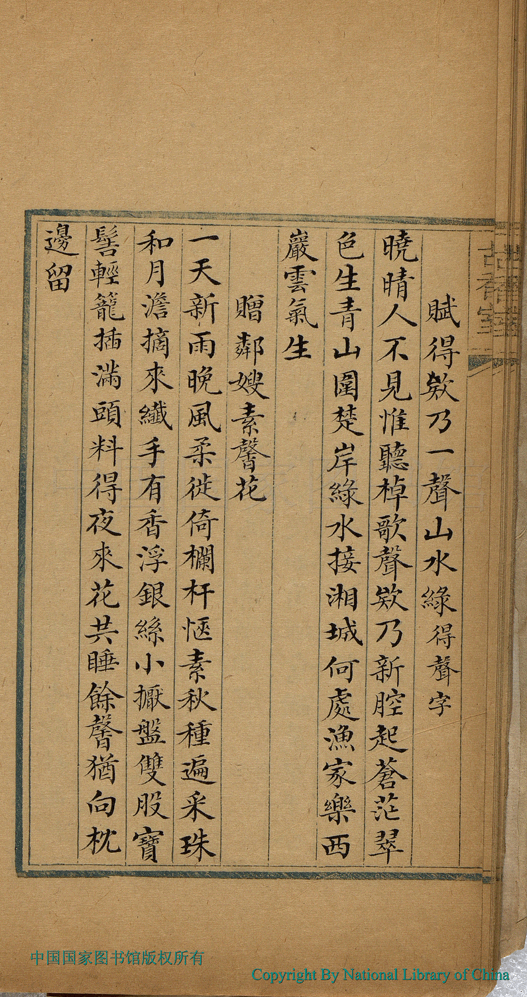 賦得欸乃一聲山水綠得聲字
曉晴人不見惟聽棹歌聲欸乃新腔起蒼茫翠
色生青山圍楚岸綠水接湘城何處漁家樂西
巖雲氣生
贈鄰嫂素馨花
一天新雨晚風柔徙倚欄杆愜素秋種遍采珠
和月澹摘來纖手有香浮銀絲小擫盤雙股寶
髻輕籠插滿頭料得夜來花共睡餘馨猶向枕
邊留
中国国家图书馆版权所有
Copyright By National Library of China